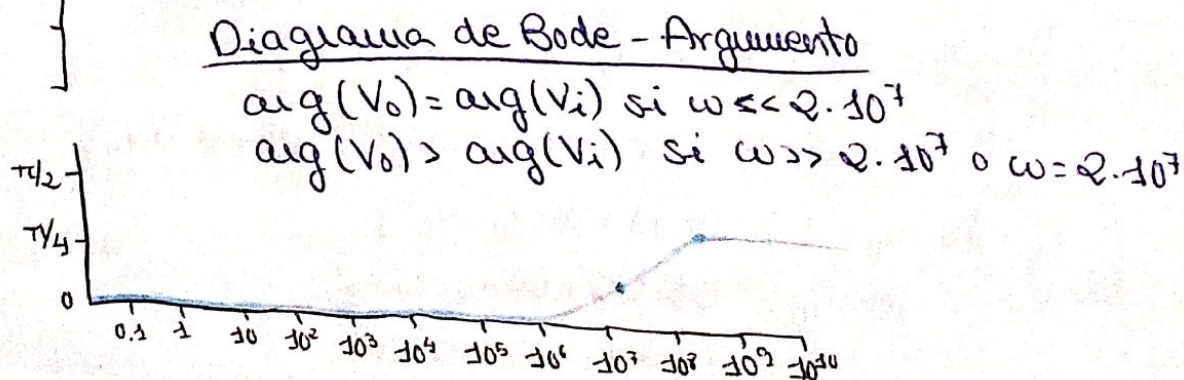 Diagrama de Bode - Argumento
arg(V₀) = arg(Vᵢ) si ω << 2·10⁷
arg(V₀) > arg(Vᵢ) si ω >> 2·10⁷ o ω = 2·10⁷
π/2
π/4
0
0.1 1 10 10² 10³ 10⁴ 10⁵ 10⁶ 10⁷ 10⁸ 10⁹ 10¹⁰